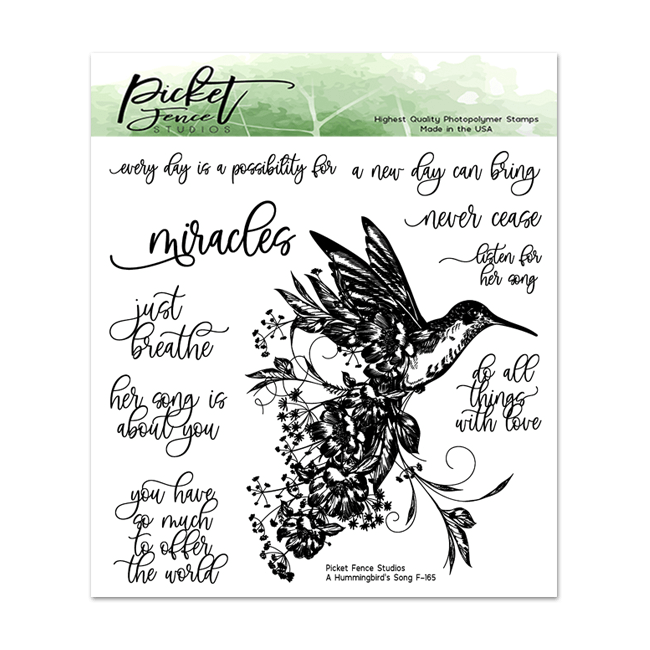 Picket
Fence
STUDIOS
Highest Quality Photopolymer Stamps
Made in the USA
every day is a possibility for
a new day can bring
never cease
miracles
listen for
her song
just
breathe
do all
things
with love
her song is
about you
you have
so much
to offer
the world
Picket Fence Studios
A Hummingbird's Song F-165